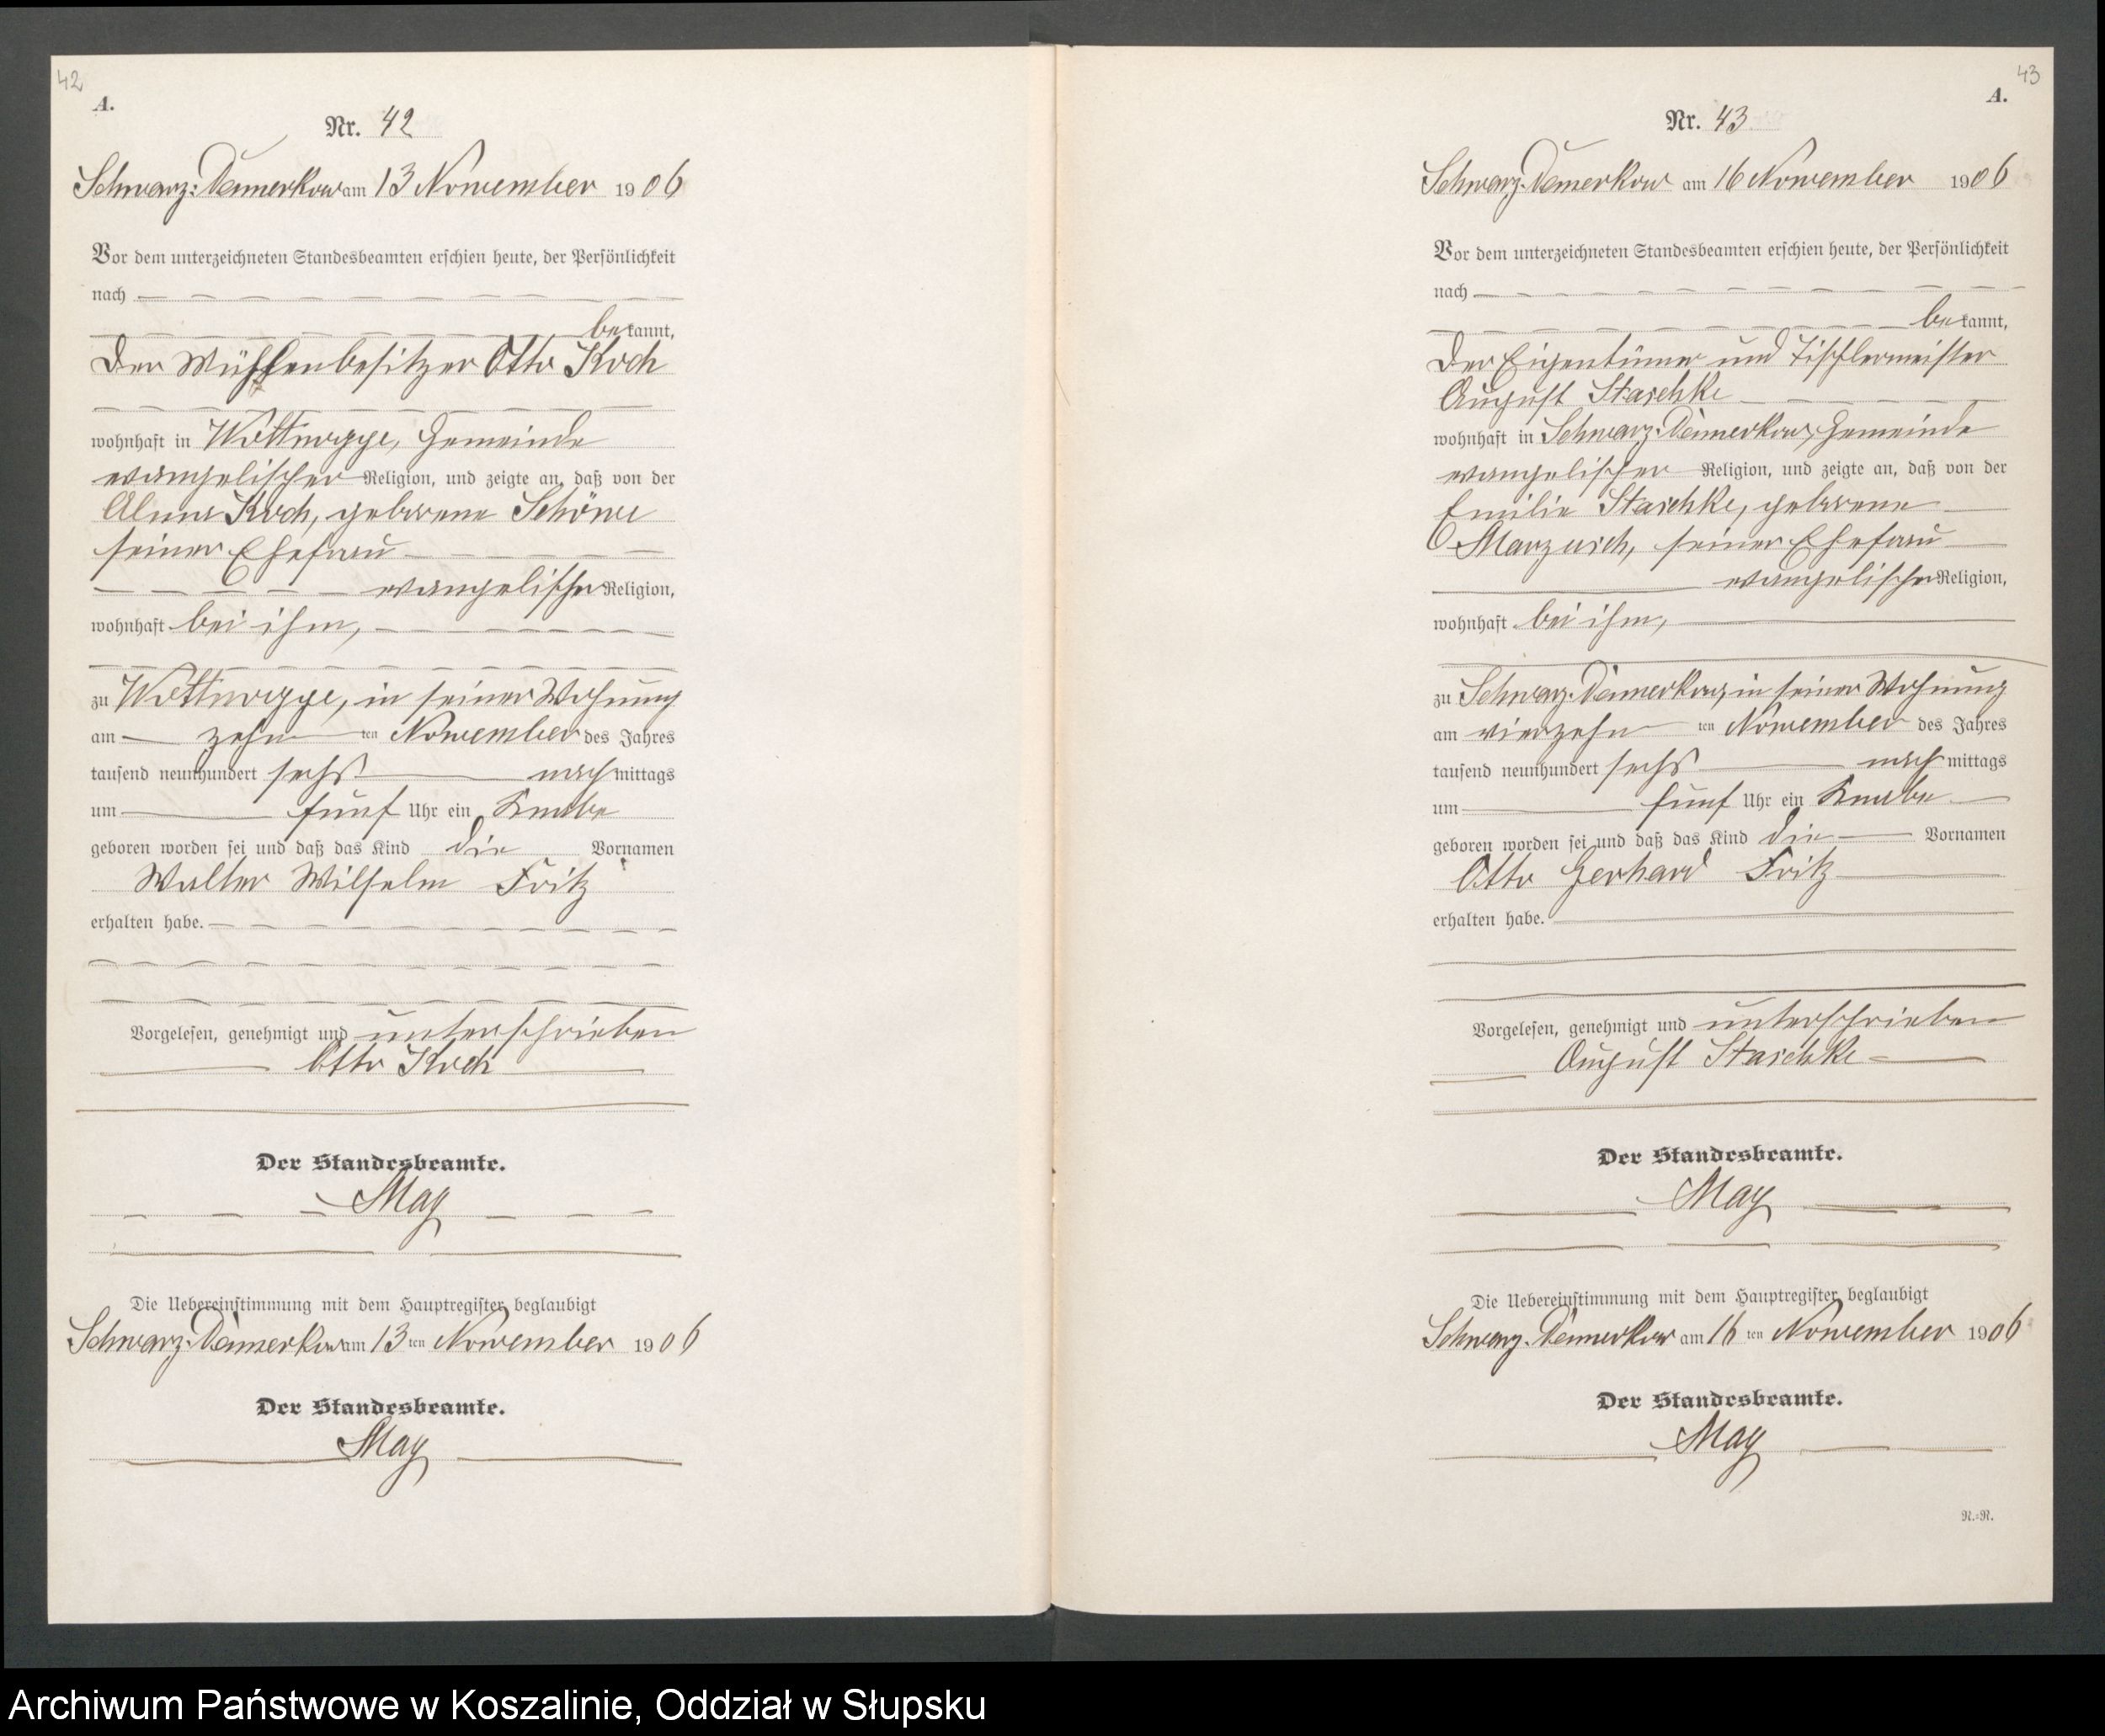 42
A.
Nr. 42
Schwarz-Damerkow am 13 November 1906
Vor dem unterzeichneten Standesbeamten erschien heute, der Persönlichkeit
nach
bekannt,
Der Mühlenbesitzer Otto Koch
wohnhaft in Wottnogge, Gemeinde
evangelischer Religion, und zeigte an, daß von der
Koch, geborene Schöne
seiner Ehefrau
evangelischer Religion,
wohnhaft bei ihm,
zu Wottnogge, in seiner Wohnung
am zehn ten November des Jahres
tausend neunhundert sechs nachmittags
um fünf Uhr ein Knabe
geboren worden sei und daß das Kind die Vornamen
Walter Wilhelm Fritz
erhalten habe.
Vorgelesen, genehmigt und unterschrieben
Otto Koch
Der Standesbeamte.
May
Die Uebereinstimmung mit dem Hauptregister beglaubigt
Schwarz-Damerkow am 13 ten November 1906
Der Standesbeamte.
May
43
A.
Nr. 43
Schwarz-Damerkow am 16 November 1906
Vor dem unterzeichneten Standesbeamten erschien heute, der Persönlichkeit
nach
bekannt,
Der Eigentümer und Tischlermeister
August Staschke
wohnhaft in Schwarz-Damerkow, Gemeinde
evangelischer Religion, und zeigte an, daß von der
Emilie Staschke, geborene
seiner Ehefrau
evangelischer Religion,
wohnhaft bei ihm,
zu Schwarz-Damerkow, in seiner Wohnung
am vierzehn ten November des Jahres
tausend neunhundert sechs nachmittags
um fünf Uhr ein Knabe
geboren worden sei und daß das Kind die Vornamen
Otto Gerhard Fritz
erhalten habe.
Vorgelesen, genehmigt und unterschrieben
August Staschke
Der Standesbeamte.
May
Die Uebereinstimmung mit dem Hauptregister beglaubigt
Schwarz-Damerkow am 16 ten November 1906
Der Standesbeamte.
May
N.=N.
Archiwum Państwowe w Koszalinie, Oddział w Słupsku